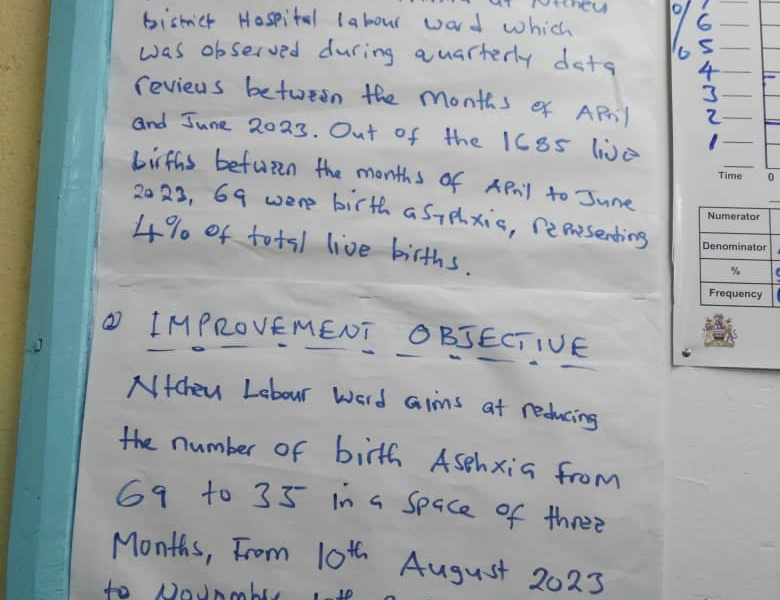 at Ntcheu
District Hospital labour ward which
was observed during quarterly data
reviews between the months of April
and June 2023. Out of the 1685 live
births between the months of April to June
2023, 69 were birth asyphxia, representing
4% of total live births.
IMPROVEMENT OBJECTIVE
Ntcheu Labour Ward aims at reducing
the number of birth Asphxia from
69 to 35 in a space of three
Months, From 10th August 2023
to November
%
6
5
4
3
2
1
Time 0
Numerator
Denominator
%
Frequency